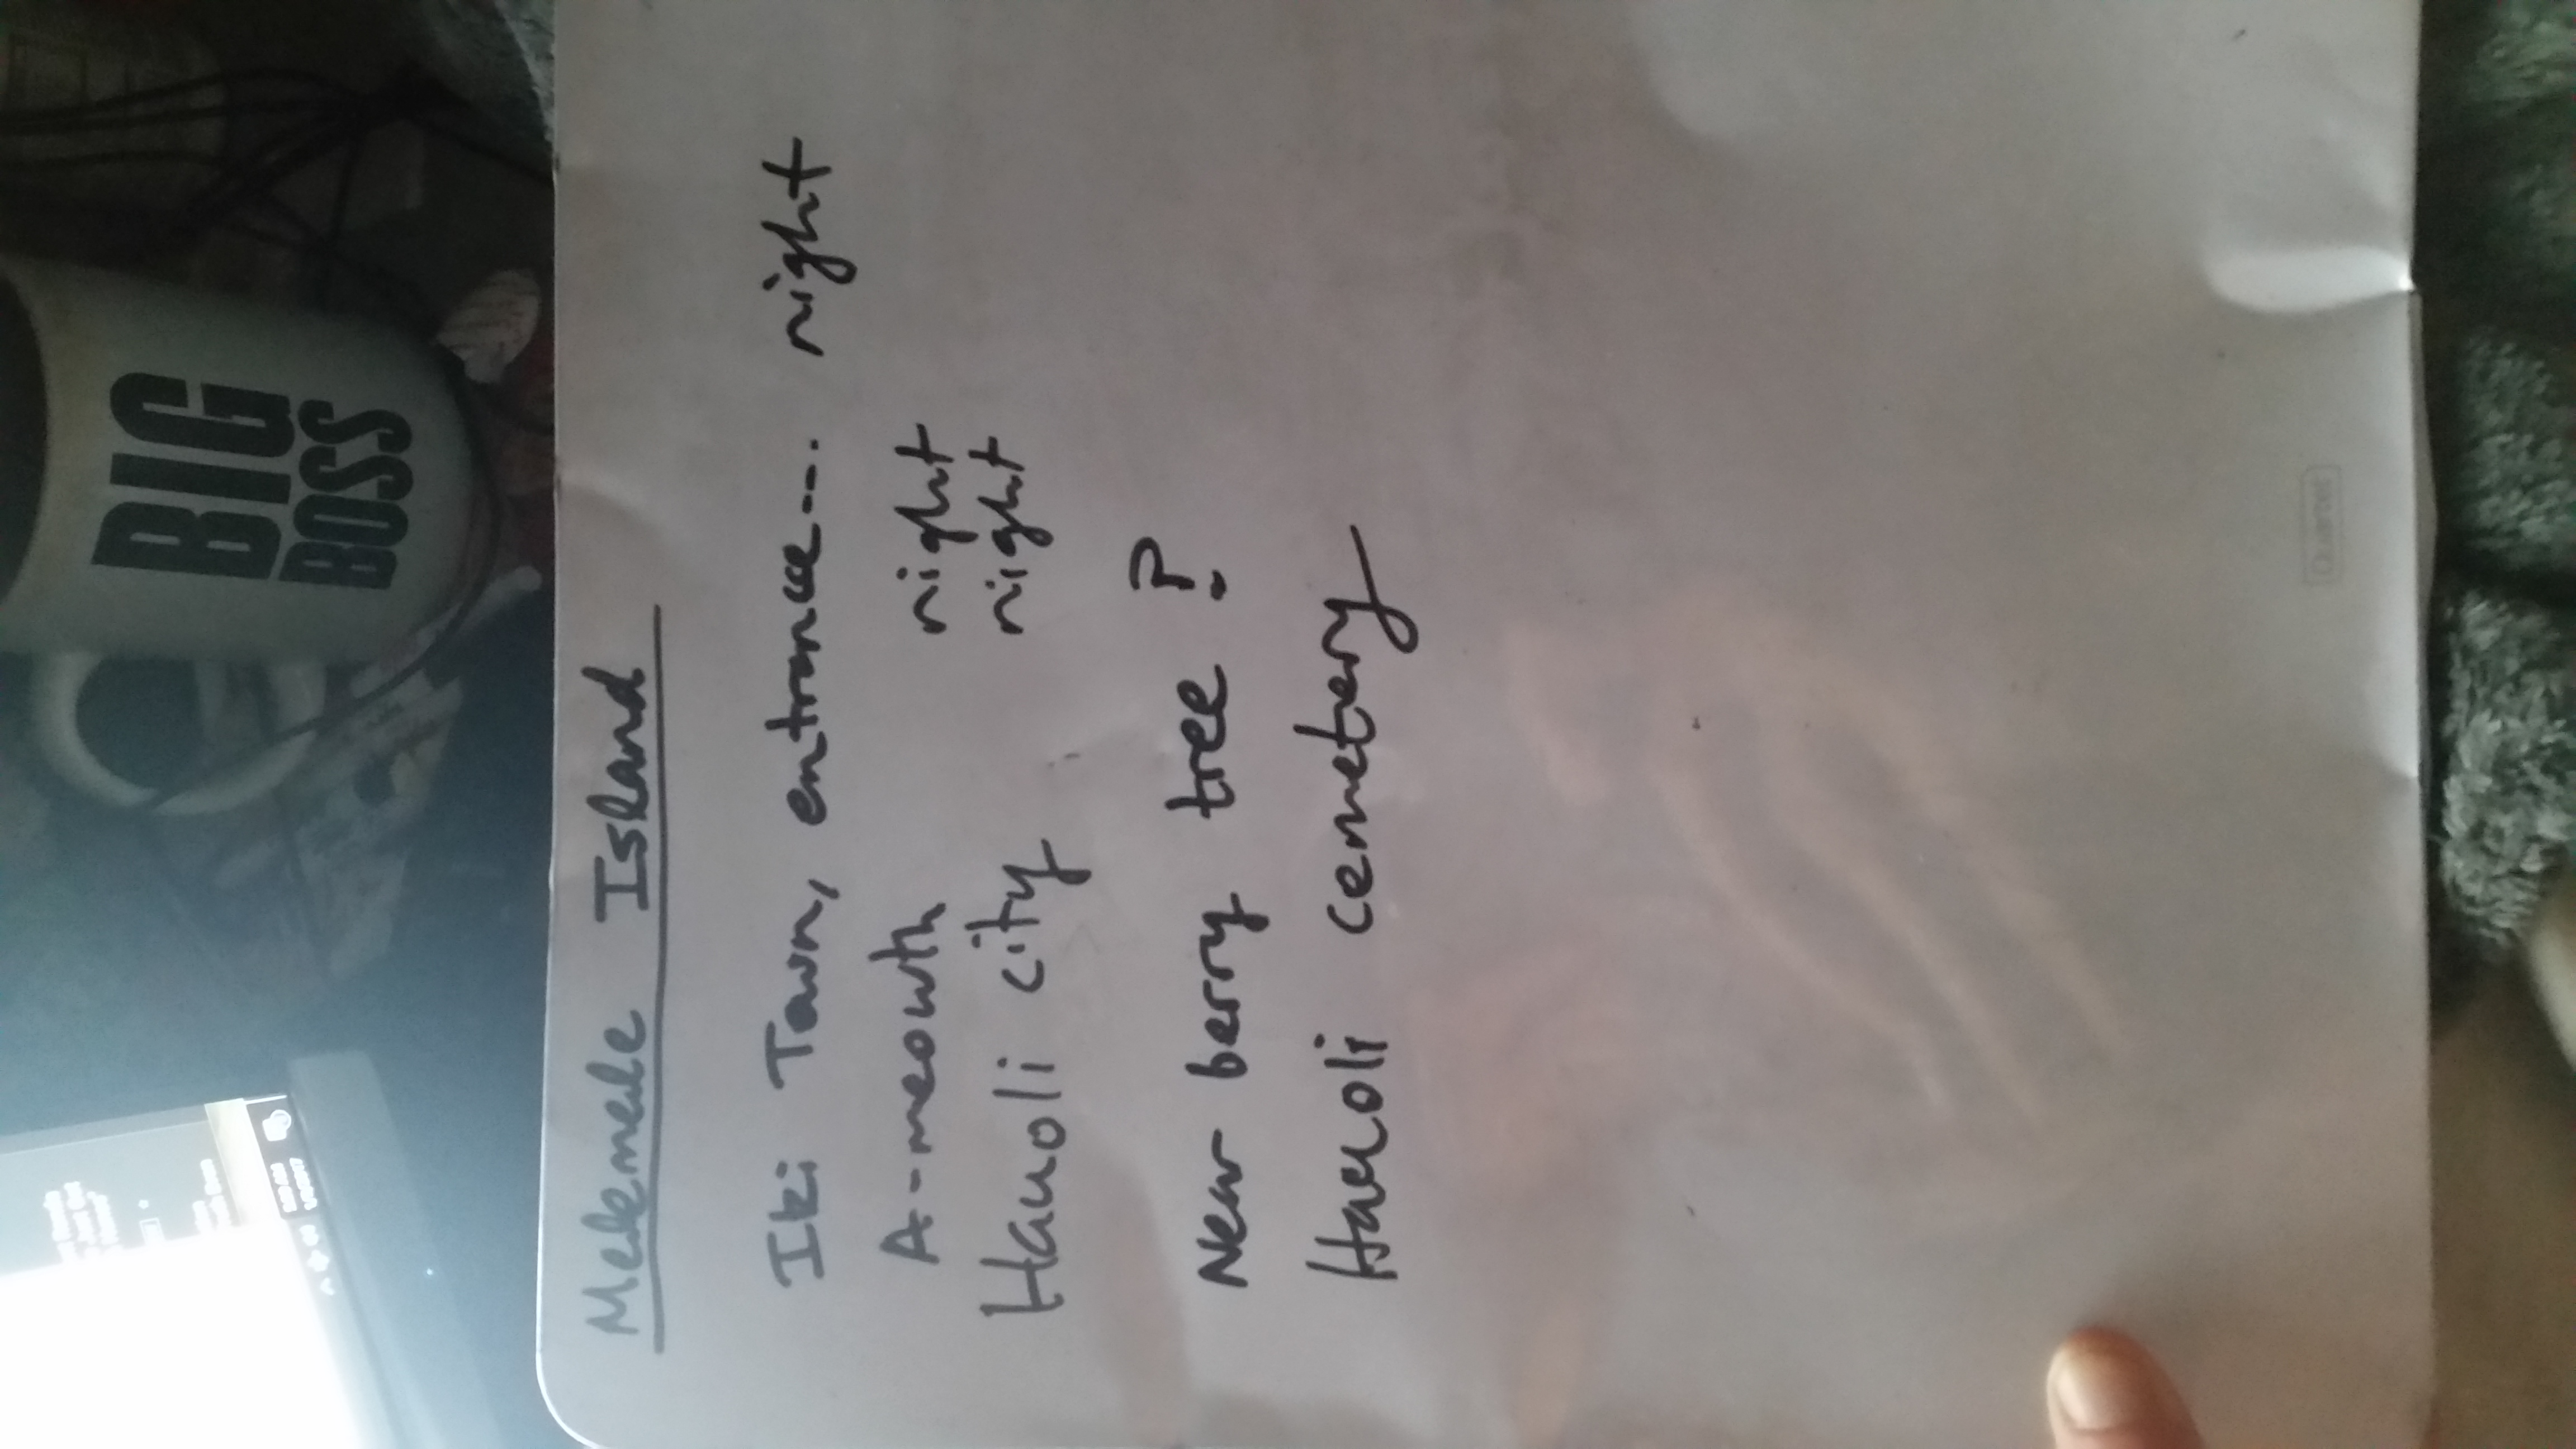 BIG
BOSS
Melemele Island
Iki Town, entrance... night
A-meowth night
Hauoli city night
Near berry tree ?
Hauoli cemetery
Quartet